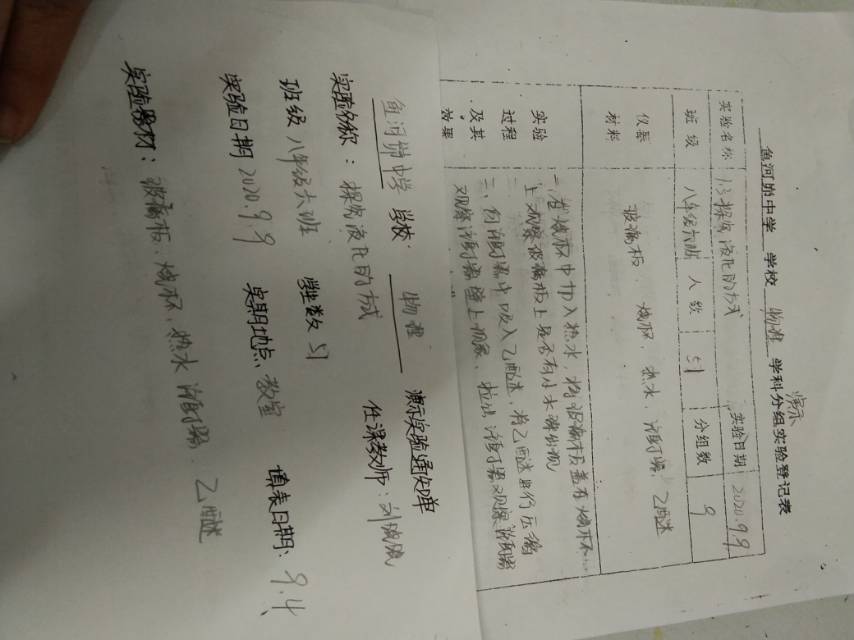 鱼河峁中学 学校 物理 学科分组实验登记表
演示
实验名称 1.3探究液化的方式 实验日期 2020.9.9
班级 八年级六班 人数 51 分组数 9
仪器材料 玻璃板 烧杯 热水 注射器 乙醚
实验过程及其效果
一、在烧杯中加入热水,将玻璃板盖在烧杯
上观察玻璃板上是否有小水珠出现
二、向注射器中吸入乙醚,将乙醚进行压缩
观察注射器壁上现象,拉出注射器观察注射器
鱼河峁中学 学校: 物理 演示实验通知单
实验名称:探究液化的方式 任课教师:刘
班级 八年级六班 学生数 51
实验日期 2020.9.9 地点 教室 填表日期:9.4
实验器材:玻璃板、烧杯、热水 注射器、乙醚